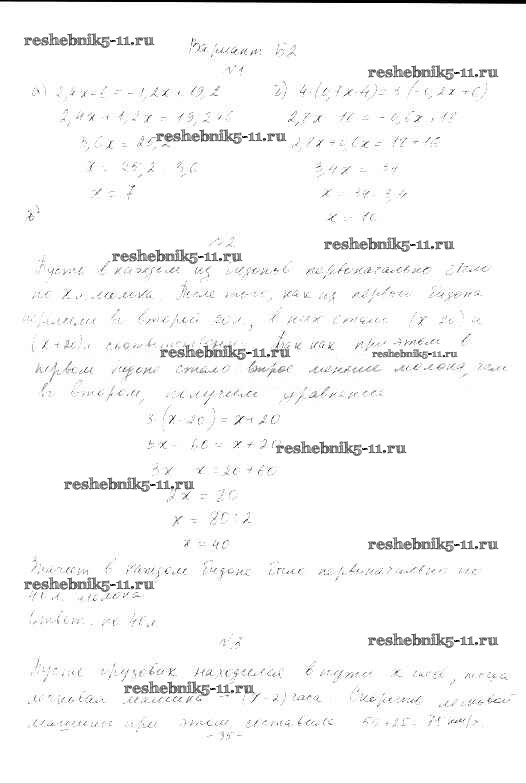 reshebnik5-11.ru
Вариант Б2
№1
reshebnik5-11.ru
а) 2,4x-6=-1,2x+19,2 б) 4(0,7x-4)=3(-0,2x+6)
2,4x+1,2x=19,2+6 2,8x-16=-0,6x+18
reshebnik5-11.ru
3,6x=25,2 2,8x+0,6x=18+16
x=25,2:3,6 3,4x=34
x=7 x=34:3,4
x=10
№2
reshebnik5-11.ru
reshebnik5-11.ru
Пусть в каждом из бидонов первоначально было
по x л молока. После того, как из первого бидона
во второй 20л, в них стало (x-20) и
(x+20)л соответственно. Так как при этом в
reshebnik5-11.ru
reshebnik5-11.ru
первом бидоне стало втрое меньше молока, чем
во втором, получим уравнение
3(x-20)=x+20
3x-60=x+20
reshebnik5-11.ru
3x-x=20+60
reshebnik5-11.ru
2x=80
x=80:2
x=40
reshebnik5-11.ru
Значит в каждом бидоне было первоначально по
reshebnik5-11.ru
40л молока
Ответ: по 40л
№3
reshebnik5-11.ru
Пусть грузовик находился в пути x часов, тогда
легковая машина - (x-2) часа. Скорость легковой
reshebnik5-11.ru
машины при этом составила 50+25=75 км/ч.
-35-